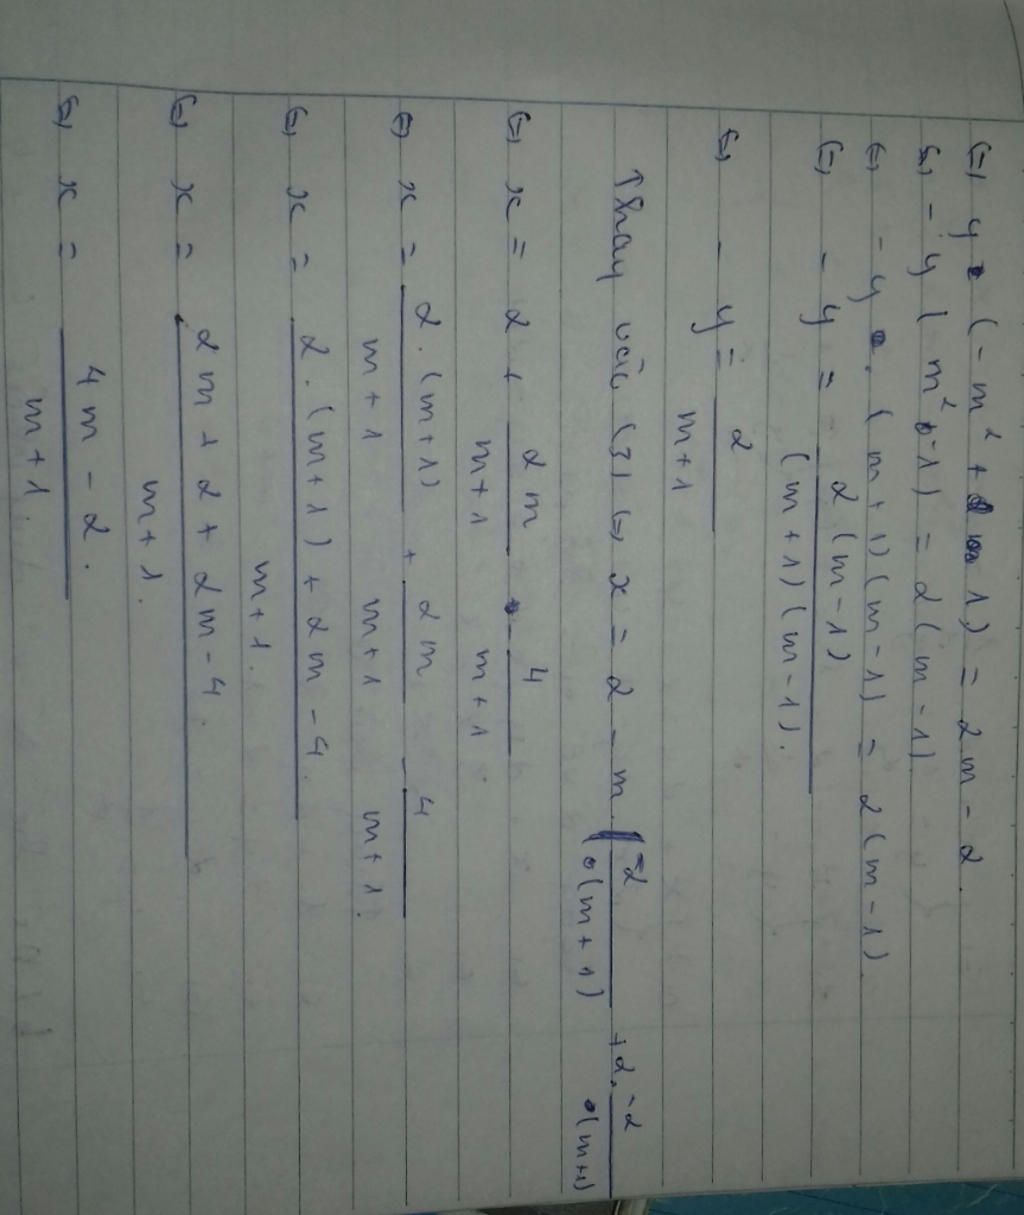 ⇔ y (-m² + 1) = 2m - 2
⇔ - y (m² - 1) = 2(m - 1)
⇔ - y . (m + 1)(m - 1) = 2(m - 1)
⇔ - y = 2(m - 1) / (m + 1)(m - 1).
⇔ - y = 2 / m+1
Thay vào (3) ⇔ x = 2 - m . -2 / (m + 1) + 2. -2 / (m+1)
⇔ x = 2 + 2m / m+1 - 4 / m+1
⇔ x = 2.(m+1) / m+1 + 2m / m+1 - 4 / m+1.
⇔ x = 2.(m+1) + 2m - 4 / m+1.
⇔ x = 2m + 2 + 2m - 4. / m+1.
⇔ x = 4m - 2. / m+1.